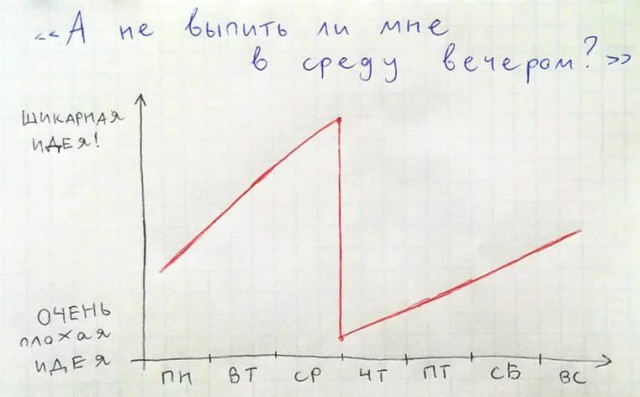 «А не выпить ли мне
в среду вечером?»
ШИКАРНАЯ
ИДЕЯ!
ОЧЕНЬ
ПЛОХАЯ
ИДЕЯ
ПН ВТ СР ЧТ ПТ СБ ВС